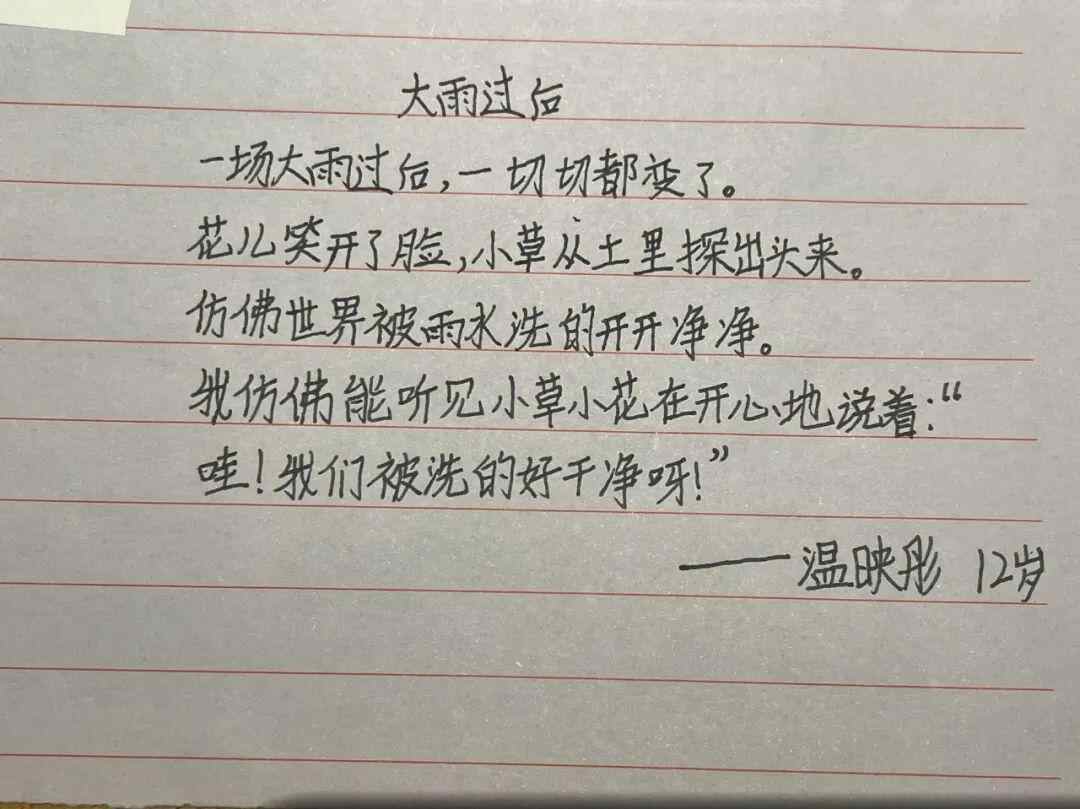 大雨过后
一场大雨过后,一切切都变了。
花儿笑开了脸,小草从土里探出头来。
仿佛世界被雨水洗的开开净净。
我仿佛能听见小草小花在开心地说着:“
哇!我们被洗的好干净呀!”
——温映彤 12岁